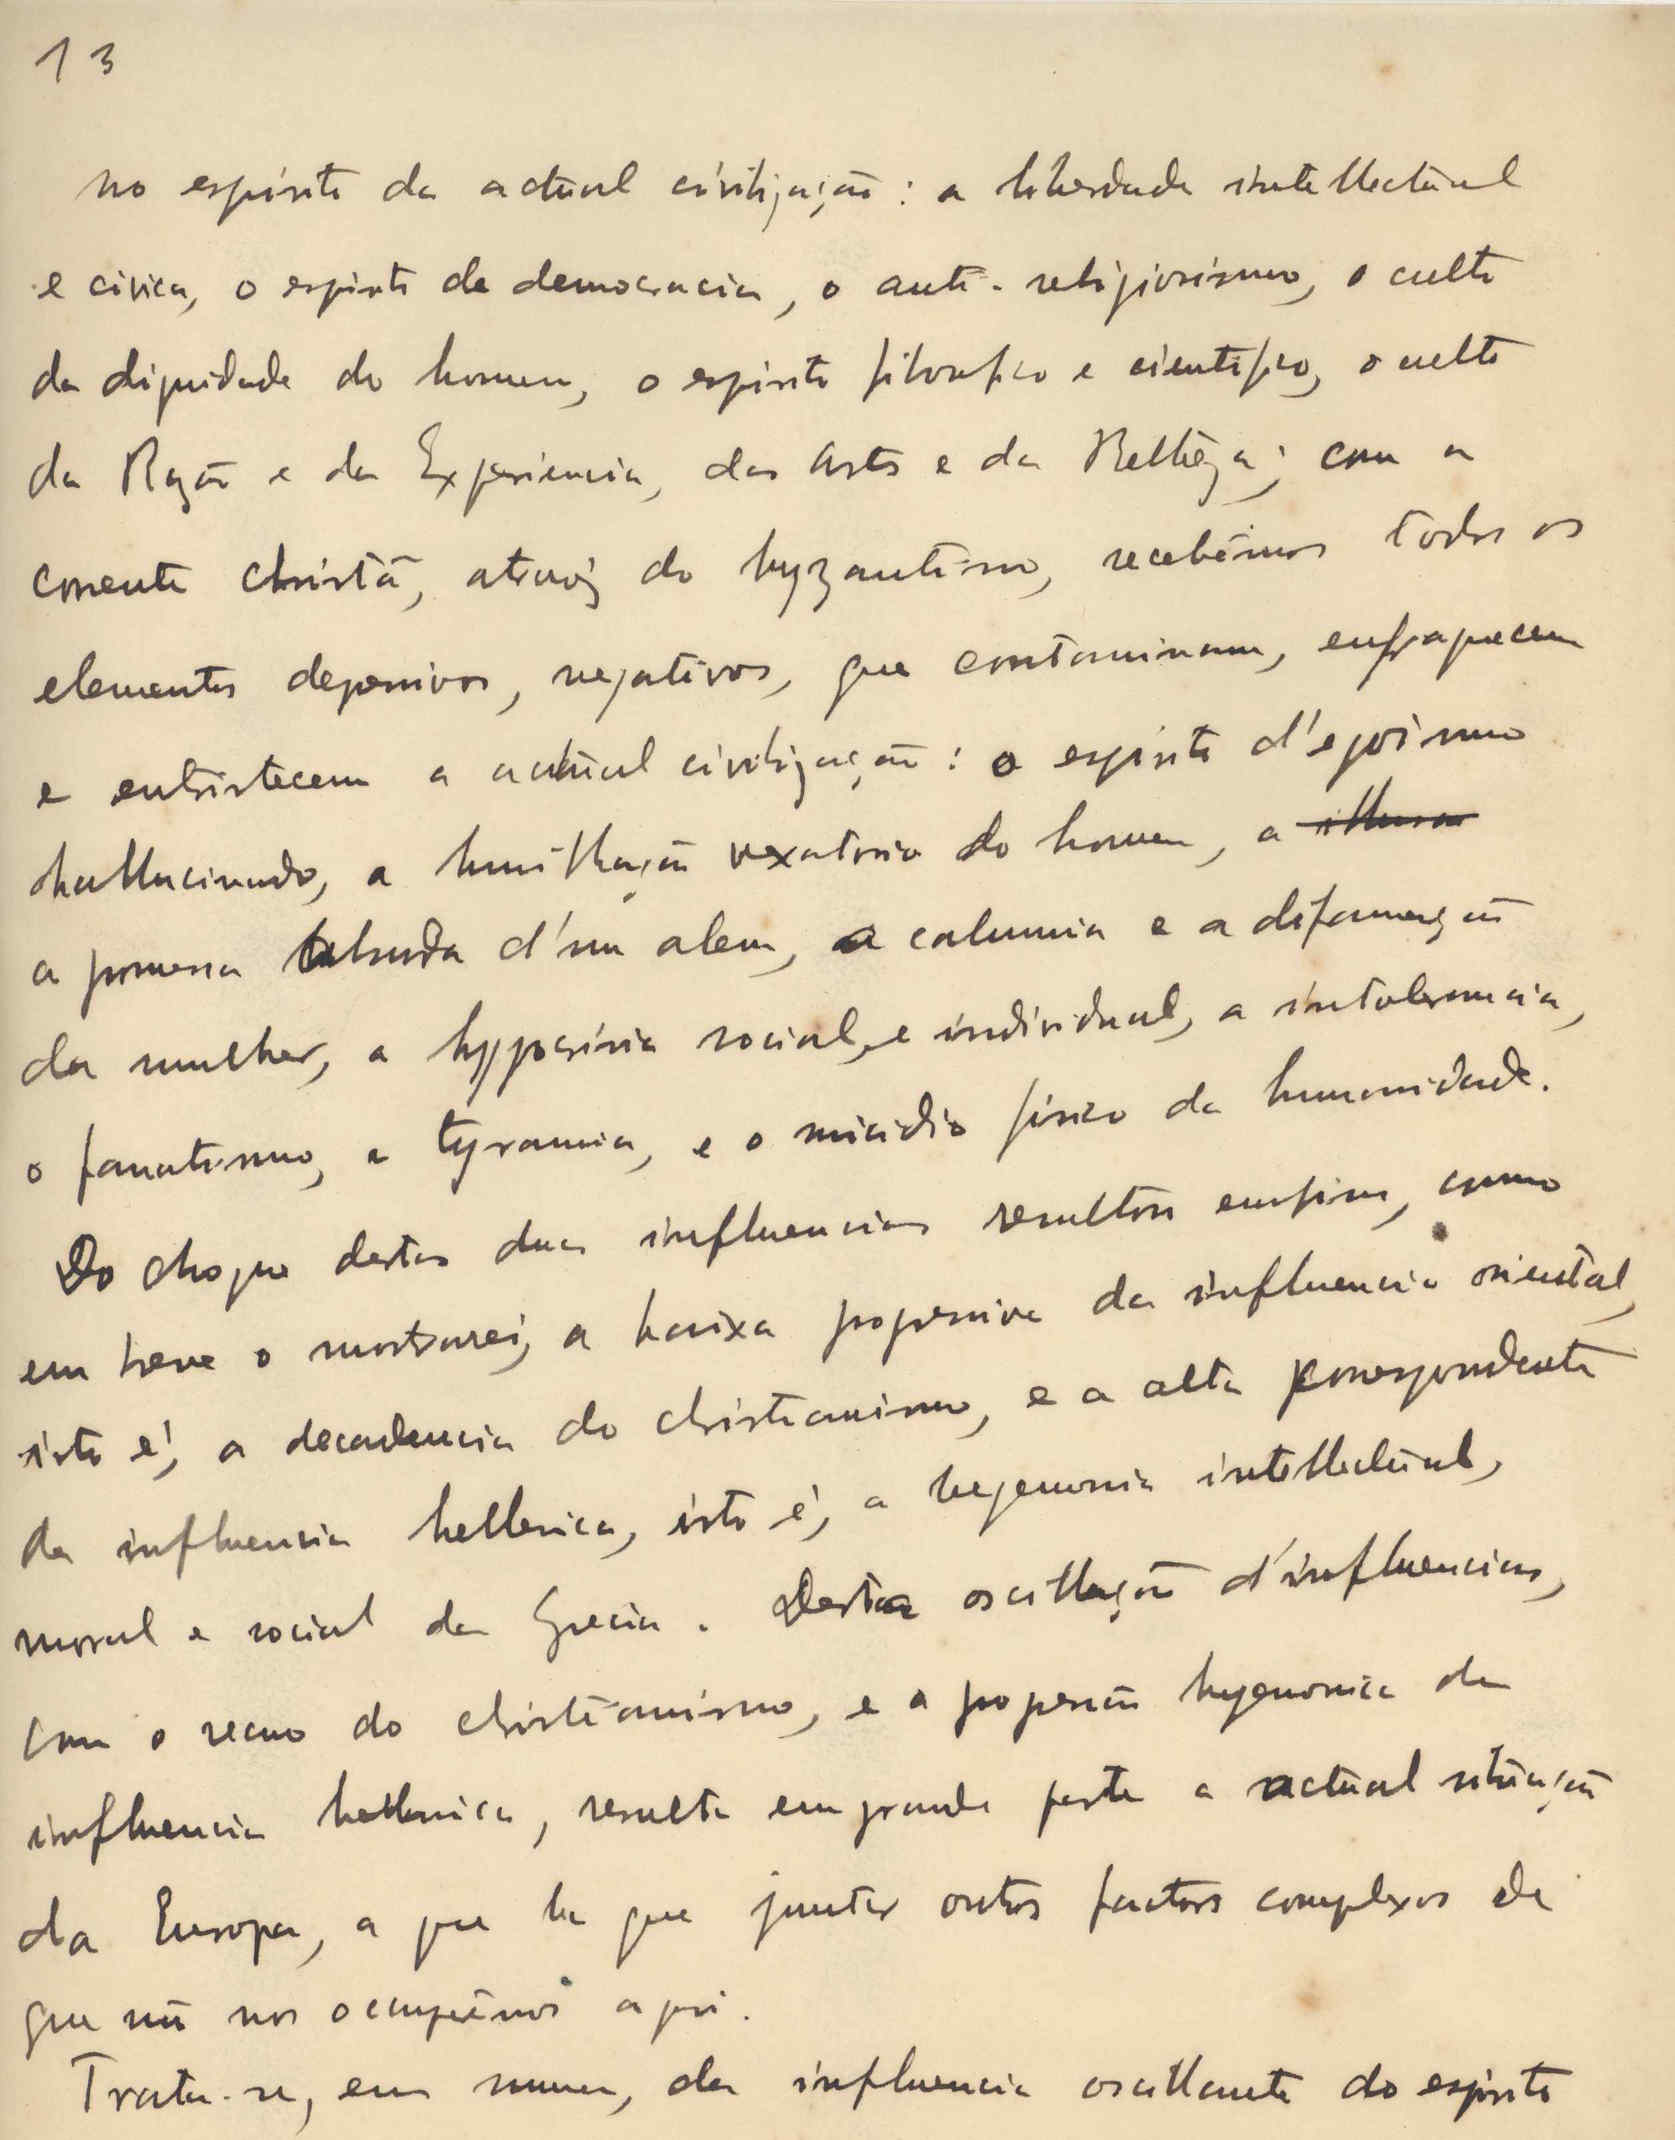 13
no espirito da actual civilização: a liberdade intellectual
e civica, o espirito de democracia, o anti-religiosismo, o culto
da dignidade do homem, o espirito filosofico e cientifico, o culto
da Razão e da Experiencia, das Artes e da Belleza; com a
corrente christã, atravéz do byzantismo, recebêmos todos os
elementos depressivos, negativos, que contaminam, enfraquecem
e entristecem a actual civilização: o espirito d'egoismo
hallucinado, a humilhação vexatoria do homem, a illusão
a promessa absurda d'um alem, a calumnia e a difamação
da mulher, a hyppocrisia social, e individual, a intolerancia,
o fanatismo, a tyrannia, e o suicidio fisico da humanidade.
Do choque destas duas influencias resultou emfim, como
em breve o mostrarei, a baixa progressiva da influencia oriental,
isto é, a decadencia do christianismo, e a alta correspondente
da influencia hellenica, isto é, a hegemonia intellectual,
moral e social da Grecia. Desta oscillação d'influencias,
com o recuo do christianismo, e a progressão hegemonica da
influencia hellenica, resulta em grande parte a actual situação
da Europa, a que ha que juntar outros factores complexos de
que não nos occupâmos aqui.
Trata-se, em summa, da influencia oscillante do espirito